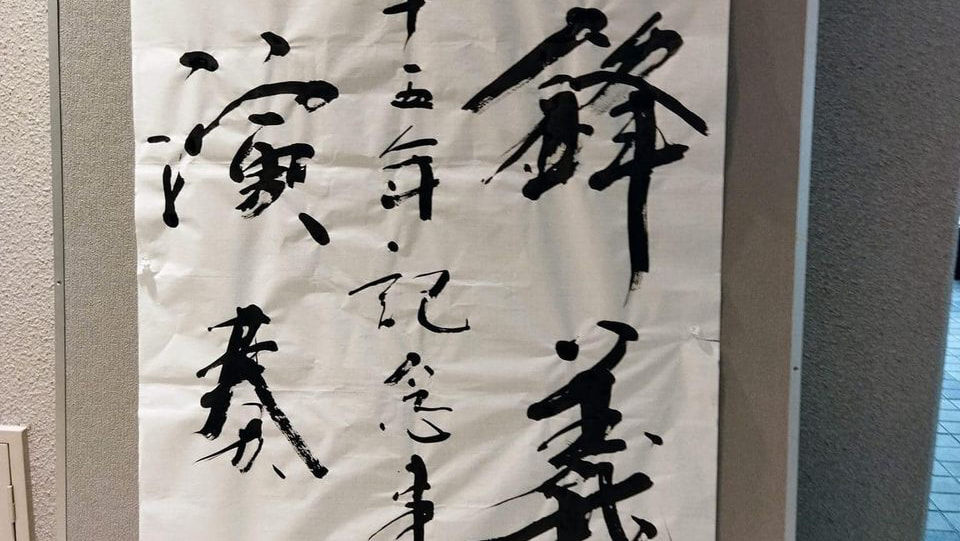 鋒義
十五年記念事
演奏